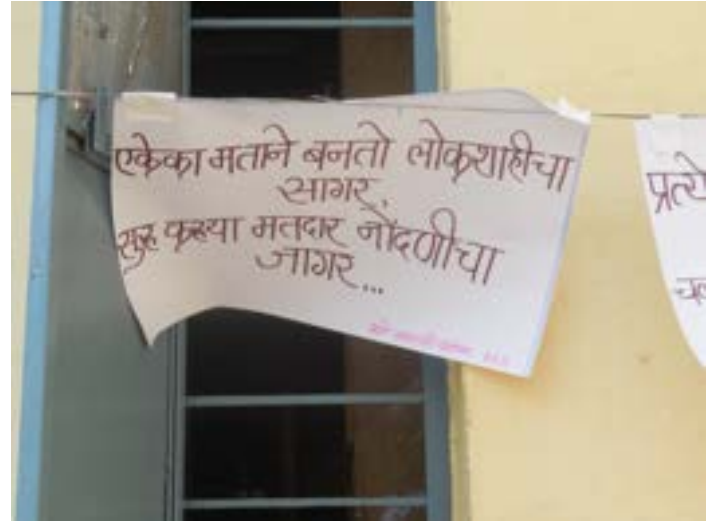 एकेका मताने बनतो लोकशाहीचा
सागर,
सुरु करूया मतदार नोंदणीचा
जागर...
प्रत्ये
चल